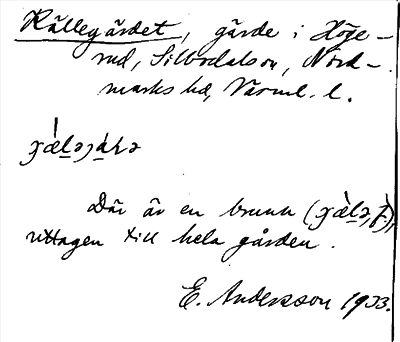 Källegärdet, gärde i Höge-
rud, Silbodalson, Nord-
marks hd, Värml. l.
Där är en brunn
uttagen till hela gården.
E. Andersson 1933.